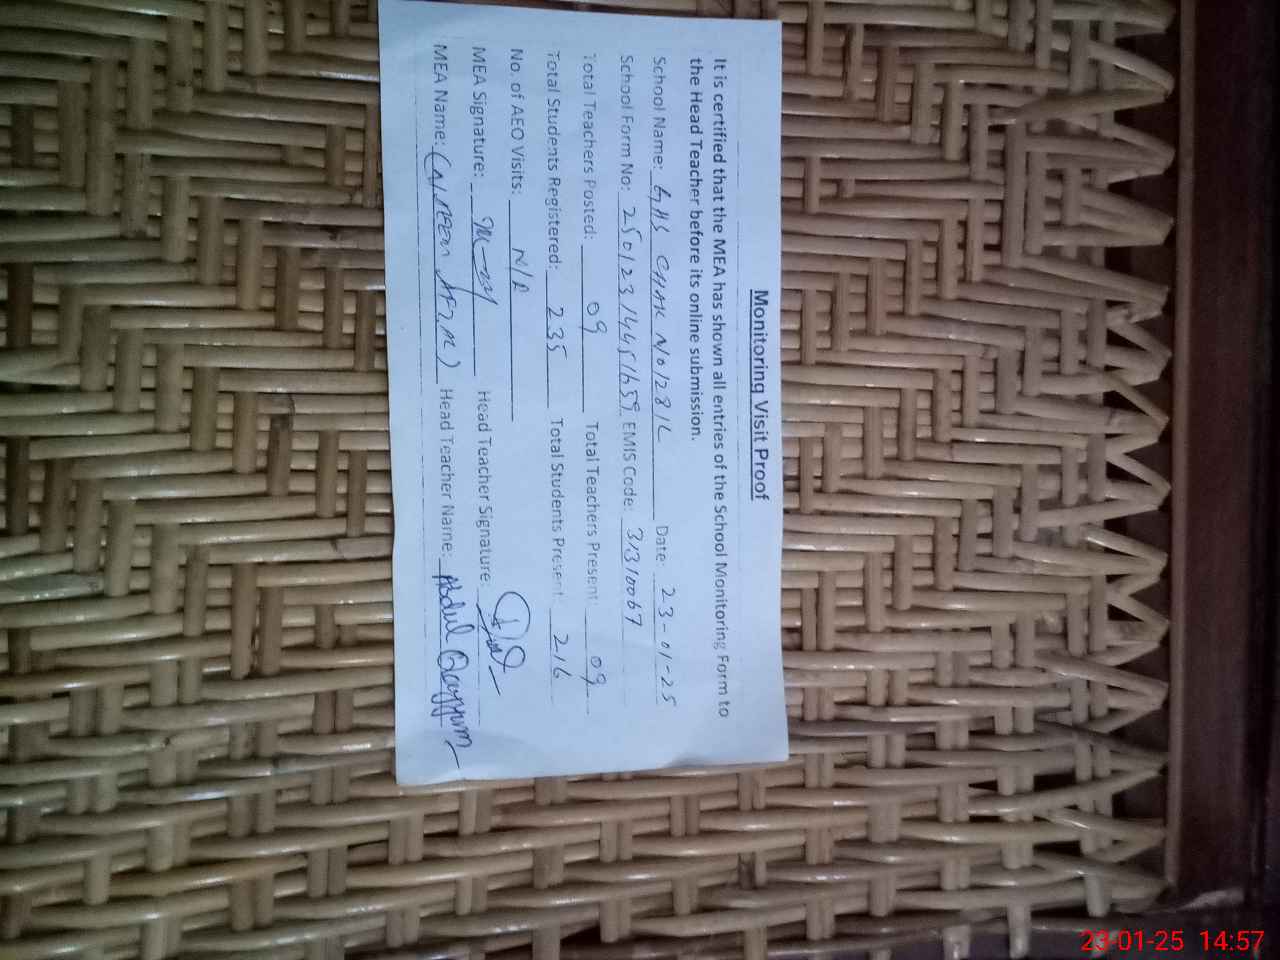 Monitoring Visit Proof
It is certified that the MEA has shown all entries of the School Monitoring Form to
the Head Teacher before its online submission.
School Name: GHS CHAK NO 128/1L Date: 23-01-25
School Form No: 250123144451659 EMIS Code: 31310067
Total Teachers Posted: 09 Total Teachers Present: 09
Total Students Registered: 235 Total Students Present: 216
No. of AEO Visits: N/A
MEA Signature: Head Teacher Signature:
MEA Name: Head Teacher Name: Abdul Qayyum
23-01-25 14:57